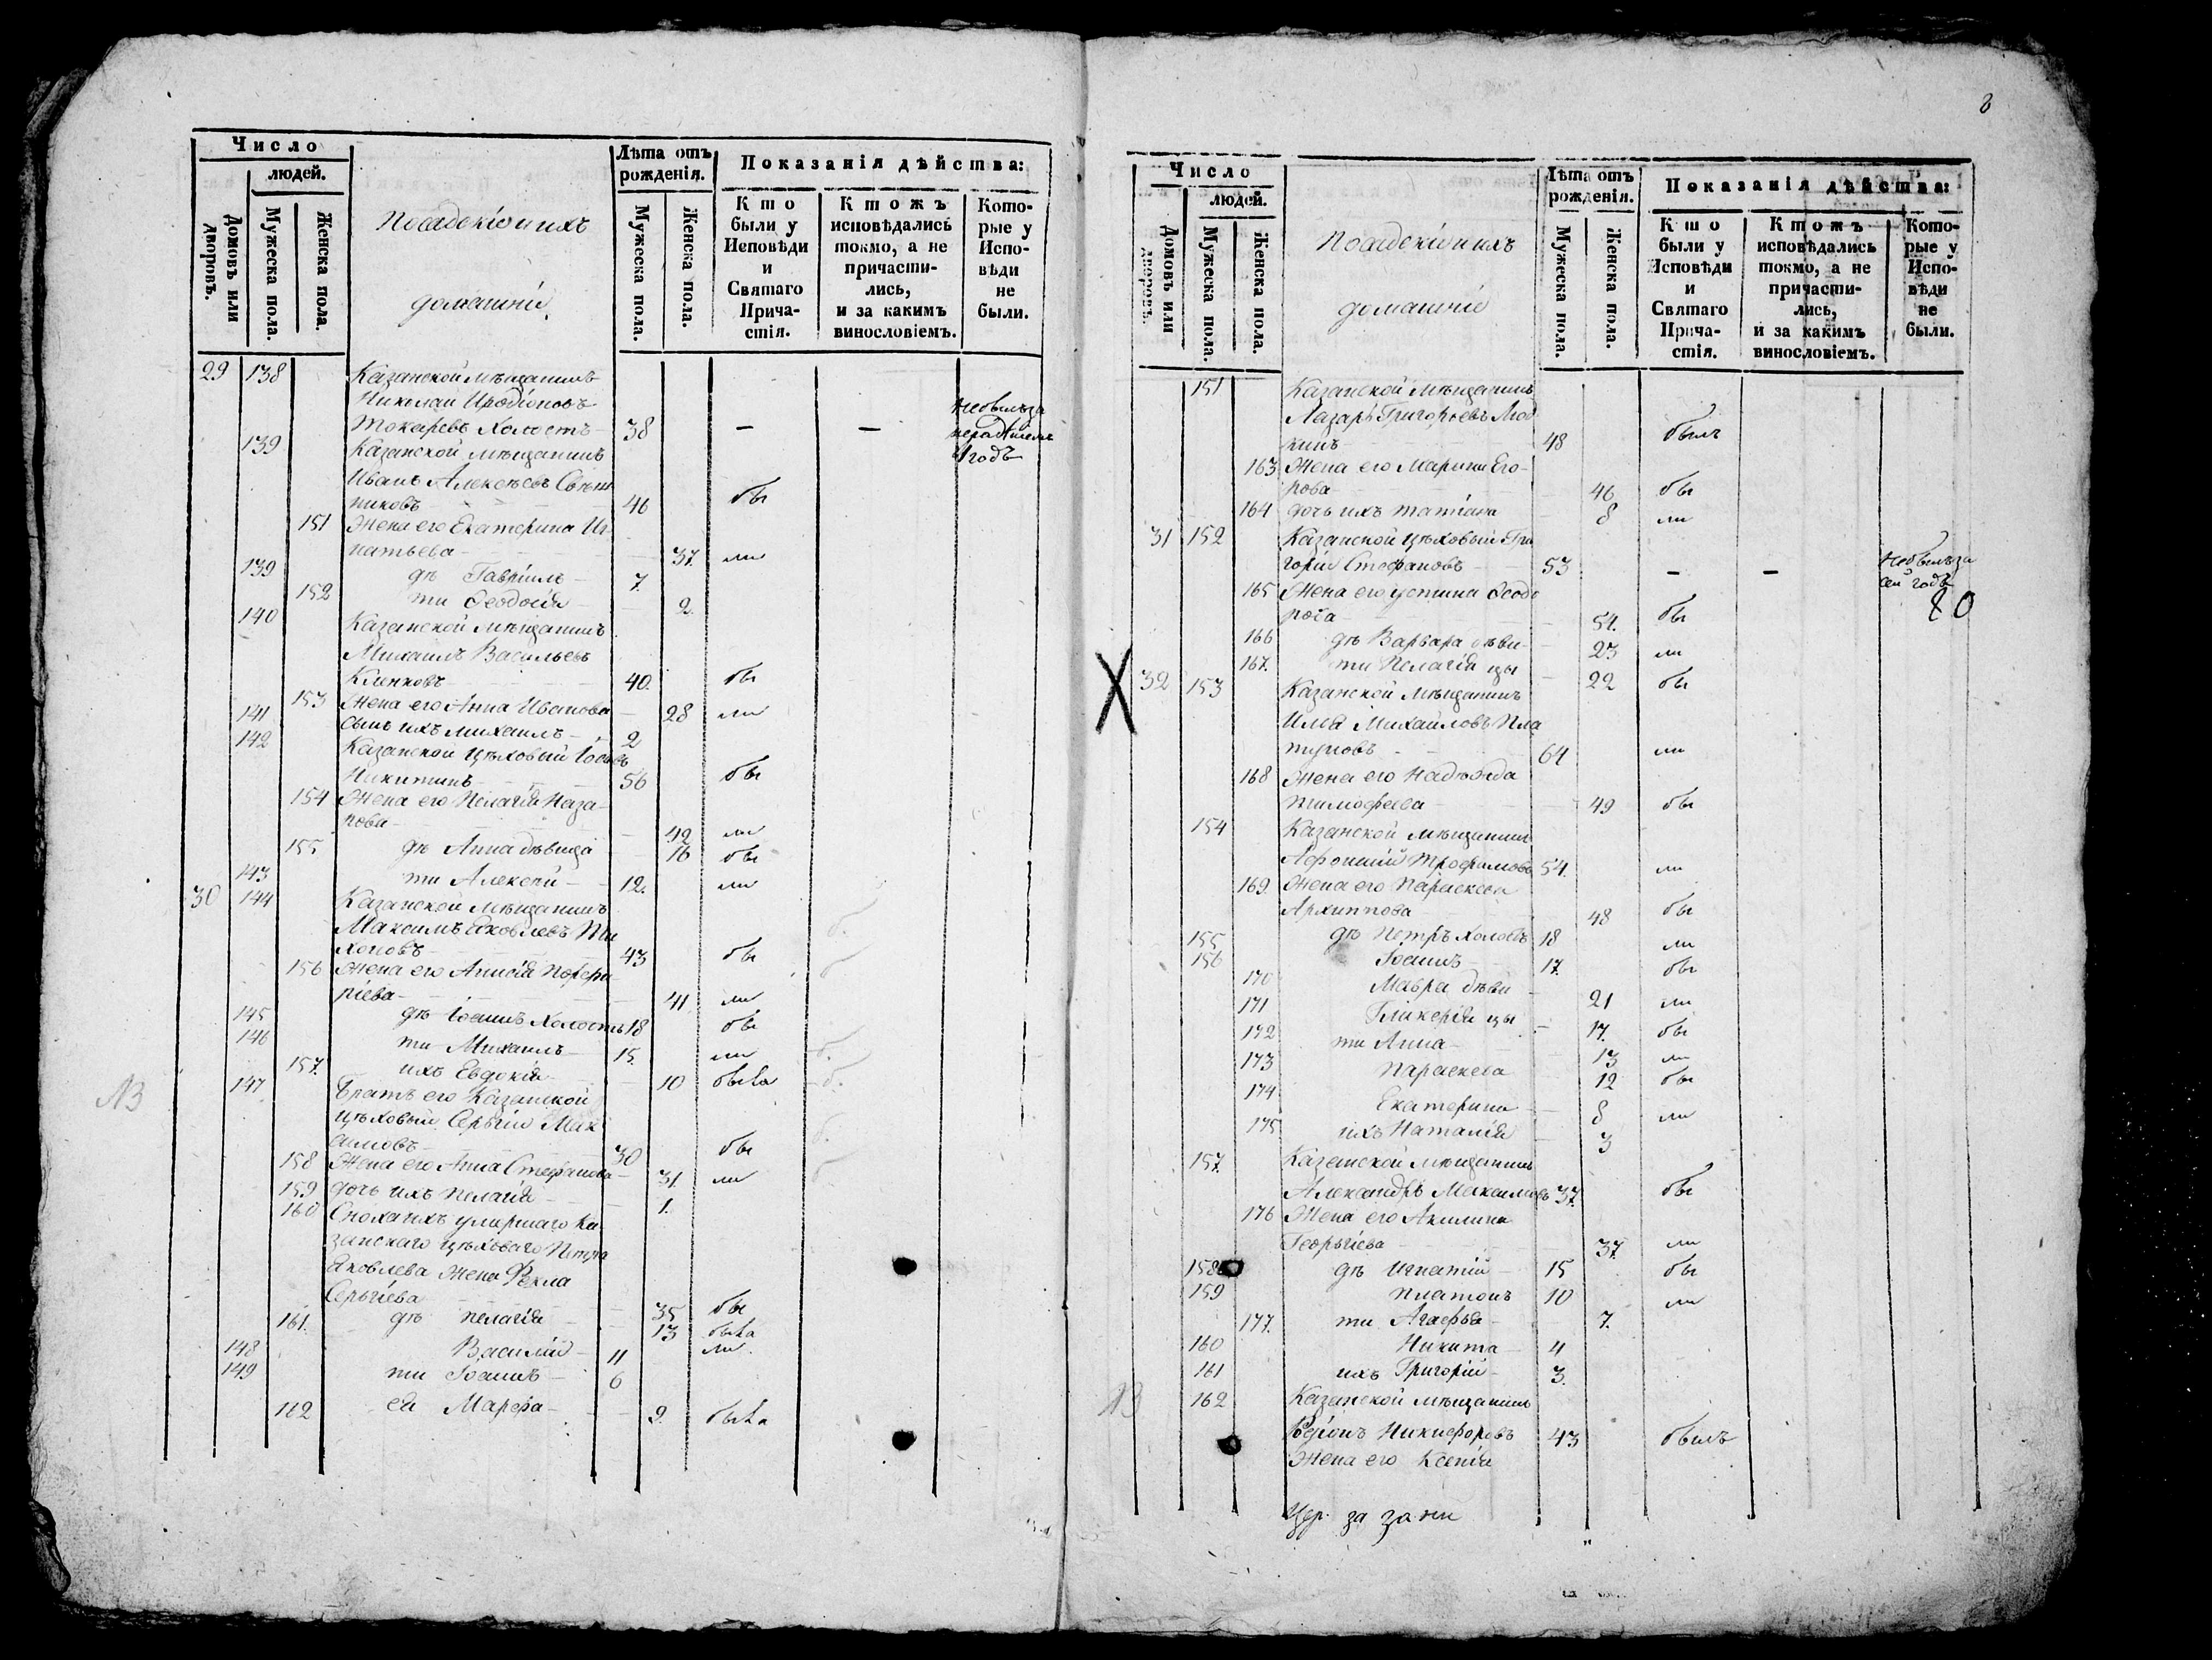 Число
людей.
Домовъ или дворовъ.
Мужеска пола.
Женска пола.
Посадскіе и ихъ
домашніе.
Лѣта отъ рожденія.
Мужеска пола.
Женска пола.
Показанія дѣйства:
Кто были у Исповѣди и Святаго Причастія.
Ктожъ исповѣдались токмо, а не причастились, и за какимъ винословіемъ.
Которые у Исповѣди не были.
29 138 Казанской мѣщанинъ
Николай Иродіоновъ
Токаревъ холостъ 38 — — Небылъ за
нерадѣніемъ
1 годъ
139 Казанской мѣщанинъ
Иванъ Алексѣевъ Свѣш
никовъ 46 бы
151 Жена его Екатерина Иг
натьева 37. ли
139 дѣ Гавріилъ 7.
152 ти Ѳеодосія 2.
140 Казанской мѣщанинъ
Михаилъ Васильевъ
Кленковъ 40. бы
153 Жена его Анна Иванова 28 ли
141 сынъ ихъ Михаилъ 2
142 Казанской цѣховый Іосифъ
Никитинъ 56 бы
154 Жена его Пелагія Наза
рова 42 ли
155 дѣ Анна дѣвица 16 бы
143 ти Алексѣй 12. ли
30 144 Казанской мѣщанинъ
Максимъ Яковлевъ Ти
хоновъ 43 бы
156 Жена его Анисія Порфи
ріева 41 ли
145 дѣ Іоаннъ холостъ 18 бы
146 ти Михаилъ 15. ли
157. ихъ Евдокія 10 была
147 Братъ его Казанской
цѣховый Сергій Мак
симовъ 30 бы
158 Жена его Анна Стефанова 31. ли
159 дочь ихъ Пелагія 1.
160 Сноха ихъ умершаго Ка
занскаго цѣховаго Петра
Яковлева жена Ѳекла
Сергіева 35 бы
161. дѣ Пелагія 13 была
148 Василій 11 ли
149 ти Іоаннъ 6
162 ея Марфа 9. была
8
Число
людей.
Домовъ или дворовъ.
Мужеска пола.
Женска пола.
Посадскіе и ихъ
домашніе
Лѣта отъ рожденія.
Мужеска пола.
Женска пола.
Показанія дѣйства:
Кто были у Исповѣди и Святаго Причастія.
Ктожъ исповѣдались токмо, а не причастились, и за какимъ винословіемъ.
Которые у Исповѣди не были.
151 Казанской мѣщанинъ
Лазарь Григорьевъ
48 былъ
163 Жена его Марина Его
рова 46 бы
164 дочь ихъ Татіана 8 ли
31 152 Казанской цѣховый Гри
горій Стефановъ 53 — — Небылъ за
сей годъ
80
165 Жена его Устина Ѳеодо
рова 54. бы
166 дѣ Варвара дѣви 23 ли
167. ти Пелагія цы 22 бы
32 153 Казанской мѣщанинъ
Илья Михайловъ Пла
туновъ 64 ли
168 Жена его Надежда
Тимофеева 49 бы
154 Казанской мѣщанинъ
Афонасій Трофимовъ 54. ли
169. Жена его Параскева
Архиппова 48 бы
155 дѣ Петръ холостъ 18 ли
156 Іоаннъ 17. бы
170 Мавра дѣви 21 ли
171 Гликерія цы 17. бы
172 ти Анна 13 ли
173 Параскева 12 бы
174 Екатерина 8 ли
175 ихъ Наталія 3
157. Казанской мѣщанинъ
Александръ Максимовъ 37. бы
176 Жена его Акилина
Георгіева 37. ли
158 дѣ Игнатій 15 бы
159 Платонъ 10 ли
177. ти Агафья 7.
160 Никита 4
161 ихъ Григорій 3.
162 Казанской мѣщанинъ
Никифоровъ 43 былъ
Жена его Ксенія